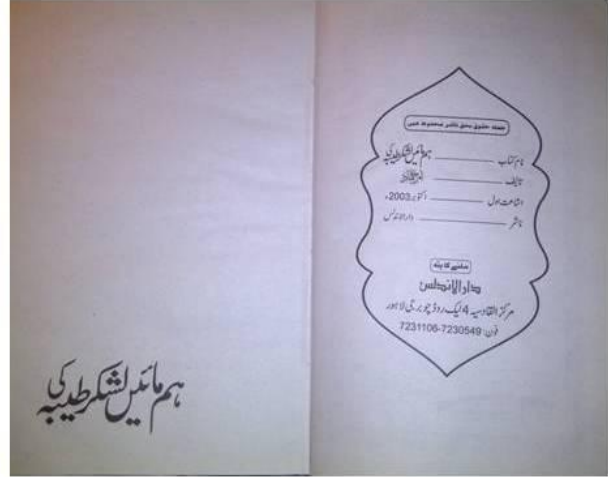 جملہ حقوق بحق ناشر محفوظ ہیں
نام کتاب ہم مائیں لشکر طیبہ کی
تالیف ام حماد
اشاعت اول اکتوبر 2003ء
ناشر دارالاندلس
ملنے کا پتہ
دارالاندلس
مرکز القادسیہ 4 لیک روڈ چوبرجی لاہور
فون: 7230549-7231106
ہم مائیں لشکر طیبہ کی